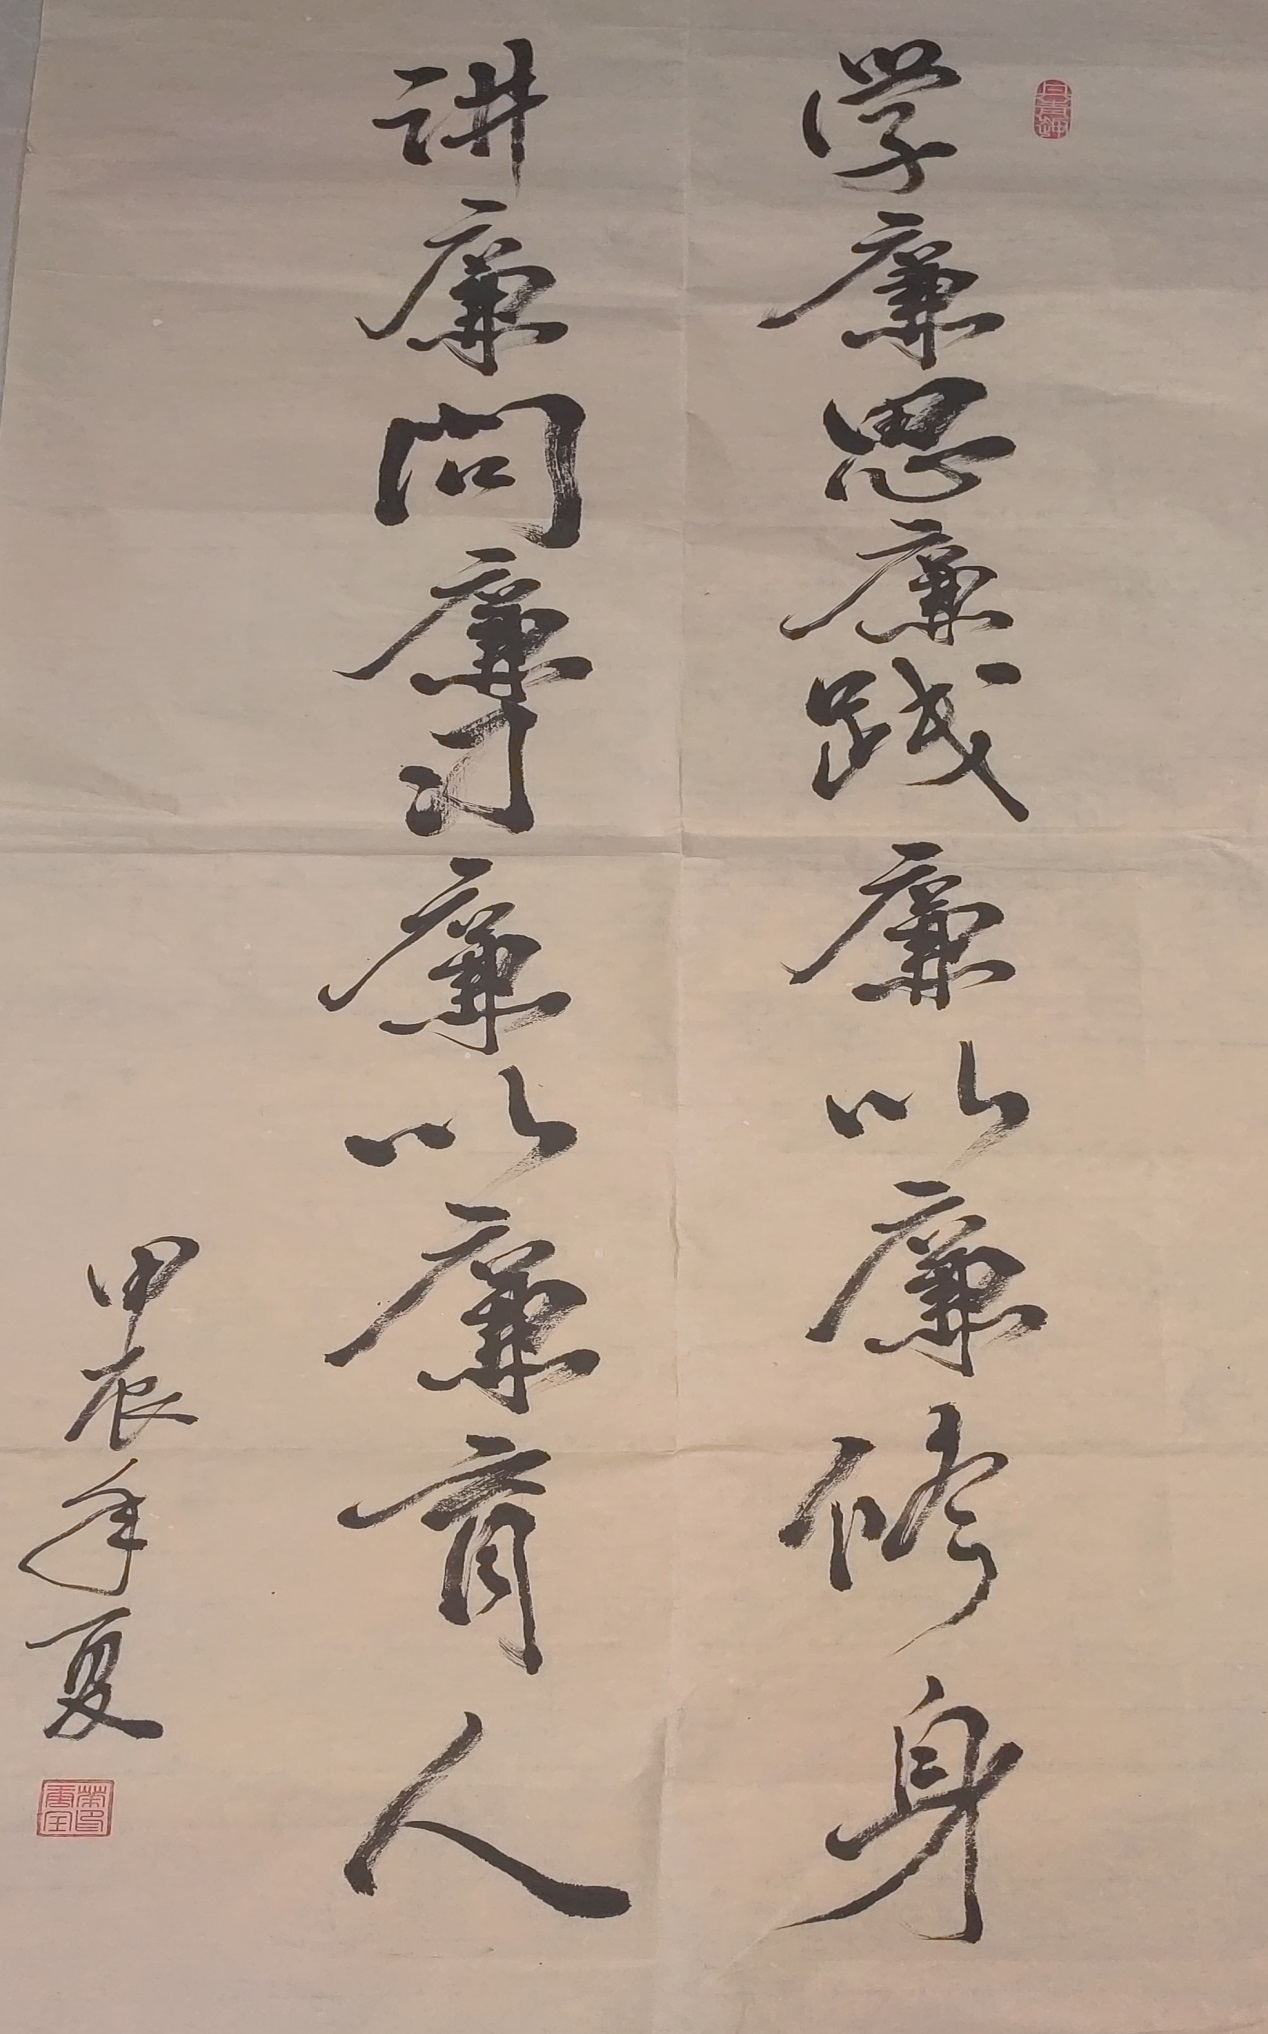 学廉思廉践廉以廉修身
讲廉问廉习廉以廉育人
甲辰年夏